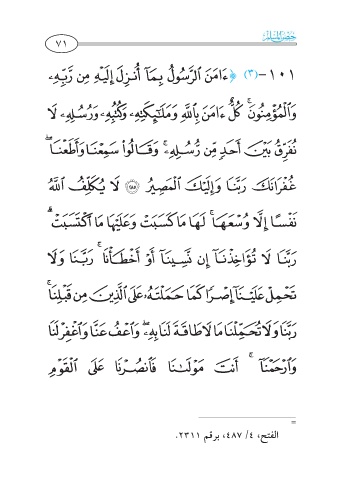 حصن المسلم
٧١
١٠١-(٣) ﴿ءَامَنَ ٱلرَّسُولُ بِمَآ أُنزِلَ إِلَيْهِ مِن رَّبِّهِۦ
وَٱلْمُؤْمِنُونَ ۚ كُلٌّ ءَامَنَ بِٱللَّهِ وَمَلَـٰٓئِكَتِهِۦ وَكُتُبِهِۦ وَرُسُلِهِۦ لَا
نُفَرِّقُ بَيْنَ أَحَدٍ مِّن رُّسُلِهِۦ ۚ وَقَالُوا۟ سَمِعْنَا وَأَطَعْنَا ۖ
غُفْرَانَكَ رَبَّنَا وَإِلَيْكَ ٱلْمَصِيرُ ﴿٢٨٥﴾ لَا يُكَلِّفُ ٱللَّهُ
نَفْسًا إِلَّا وُسْعَهَا ۚ لَهَا مَا كَسَبَتْ وَعَلَيْهَا مَا ٱكْتَسَبَتْ ۗ
رَبَّنَا لَا تُؤَاخِذْنَآ إِن نَّسِينَآ أَوْ أَخْطَأْنَا ۚ رَبَّنَا وَلَا
تَحْمِلْ عَلَيْنَآ إِصْرًا كَمَا حَمَلْتَهُۥ عَلَى ٱلَّذِينَ مِن قَبْلِنَا ۚ
رَبَّنَا وَلَا تُحَمِّلْنَا مَا لَا طَاقَةَ لَنَا بِهِۦ ۖ وَٱعْفُ عَنَّا وَٱغْفِرْ لَنَا
وَٱرْحَمْنَآ ۚ أَنتَ مَوْلَىٰنَا فَٱنصُرْنَا عَلَى ٱلْقَوْمِ
=
الفتح، ٤/ ٤٨٧، برقم ٢٣١١.